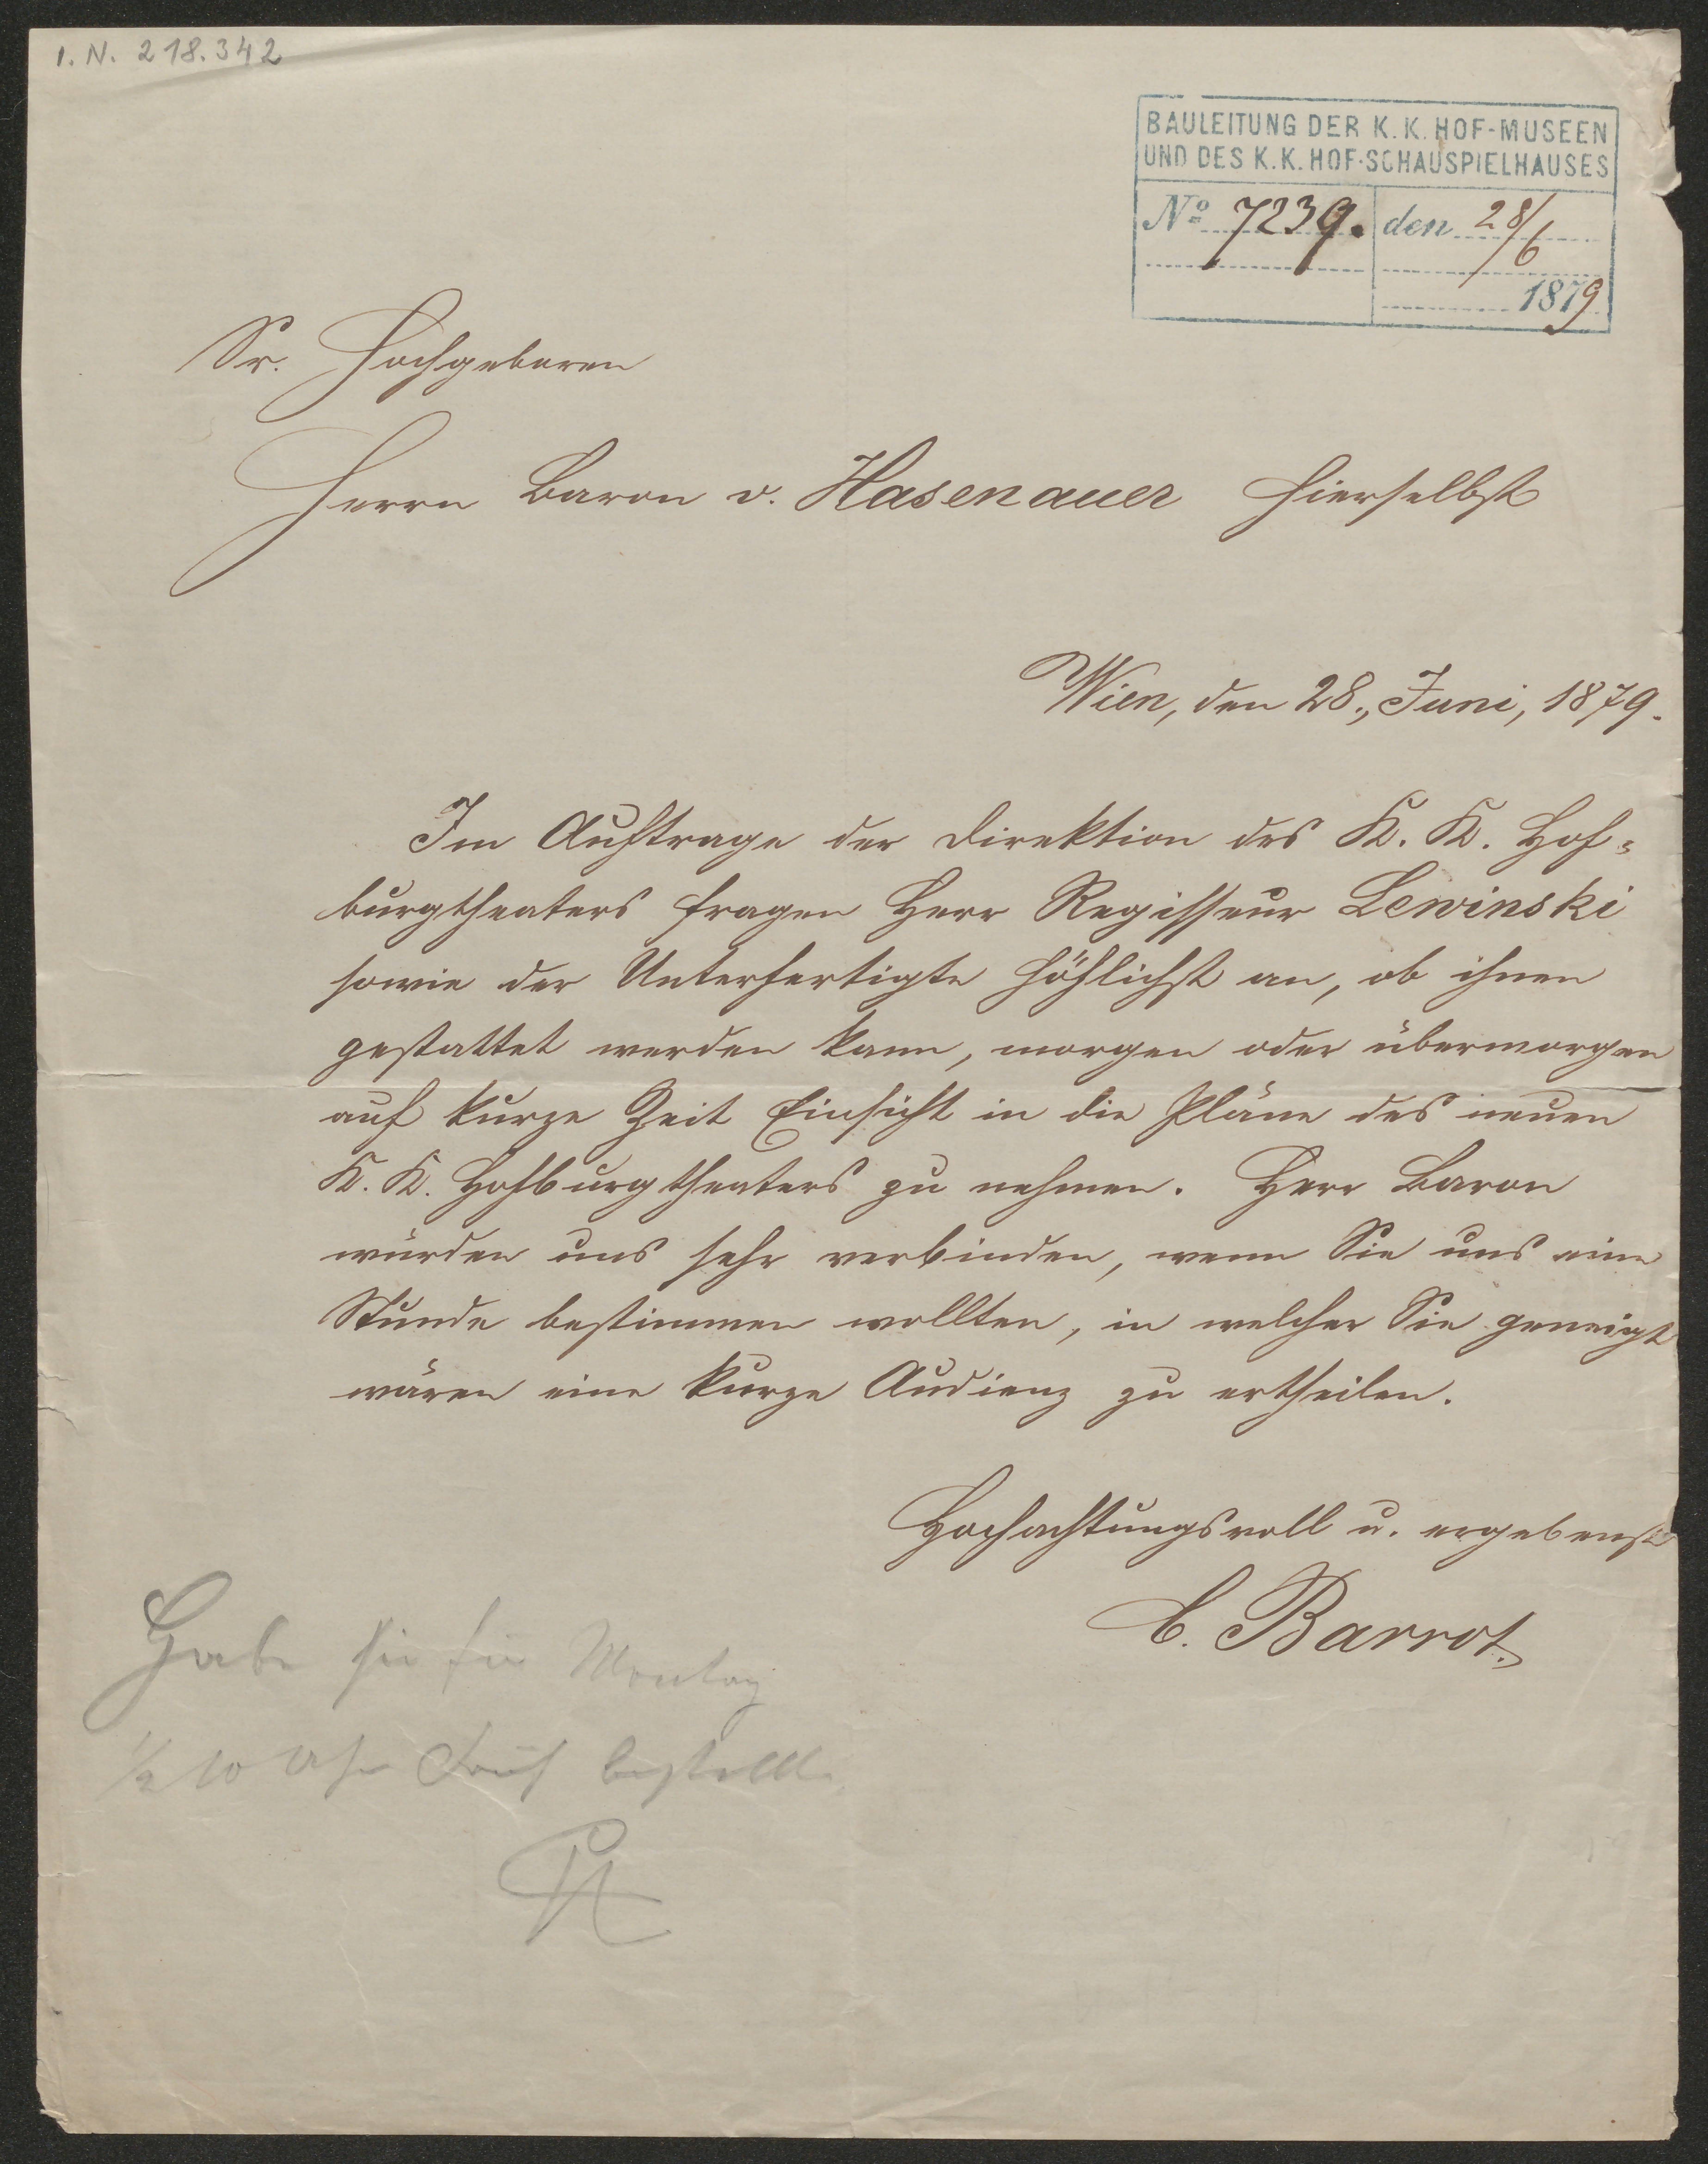 I. N. 218.342
BAULEITUNG DER K. K. HOF-MUSEEN
UND DES K. K. HOF-SCHAUSPIELHAUSES
No 7239. den 28/6
1879
Sr. Hochgeboren
Herrn Baron v. Hasenauer hierselbst
Wien, den 28., Juni, 1879.
Im Auftrage der Direktion des K. K. Hof-
burgtheaters fragen Herr Regisseur Lewinski
sowie der Unterfertigte höflichst an, ob ihnen
gestattet werden kann, morgen oder übermorgen
auf kurze Zeit Einsicht in die Pläne des neuen
K. K. Hofburgtheaters zu nehmen. Herr Baron
würden uns sehr verbinden, wenn Sie uns eine
Stunde bestimmen wollten, in welcher Sie geneigt
wären eine kurze Audienz zu ertheilen.
Hochachtungsvoll u. ergebenst
C. Barrot.
Habe sie für Montag
1/2 10 Uhr Früh bestellt.